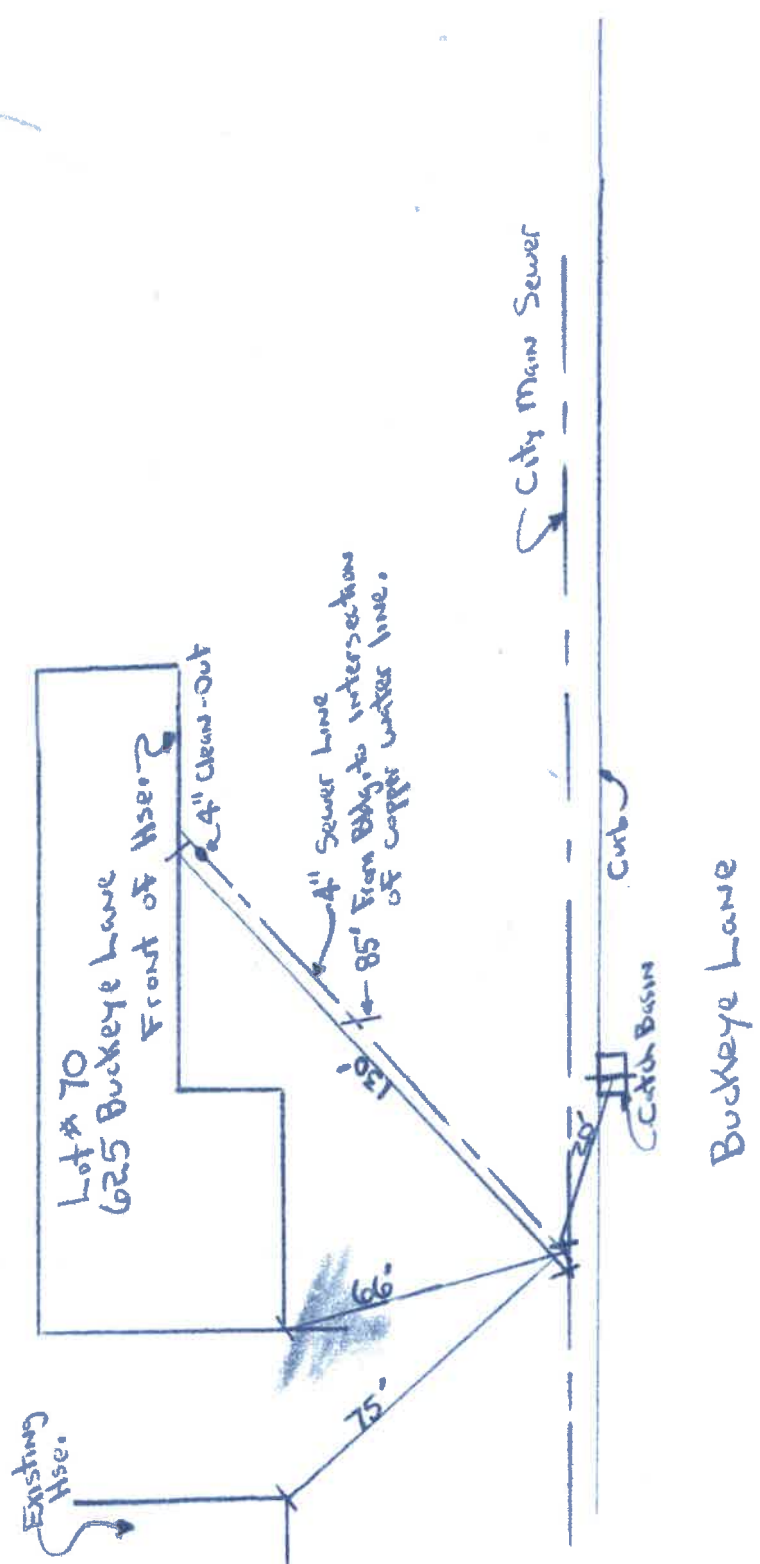 Existing
Hse.
Lot # 70
625 Buckeye Lane
Front of Hse.
4" Clean-Out
4" Sewer Line
85' From Bldg. to Intersection
of copper water line.
130'
66'
75'
20'
City Main Sewer
Curb
Catch Basin
Buckeye Lane